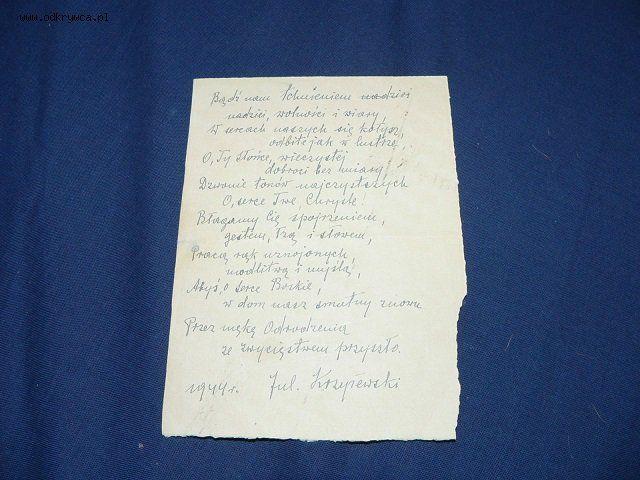 www.odkrywca.pl
Bądź nam tchnieniem nadziei
nadziei, wolności i wiary,
W sercach naszych się kołysz,
odbite jak w lustrze,
O, Ty Słońce, wieczystej
dobroci bez miary,
Dzwonie tonów najczystszych
O, serce Twe, Chryste!
Błagamy Cię spojrzeniem,
gestem, łzą i słowem,
Pracą rąk uznojonych,
modlitwą i myślą,
Abyś, o serce Boskie,
w dom nasz smutny znowu
Przez mękę Odrodzenia
ze zwycięstwem przyszło.
1944 r. Jul. Krzyżewski